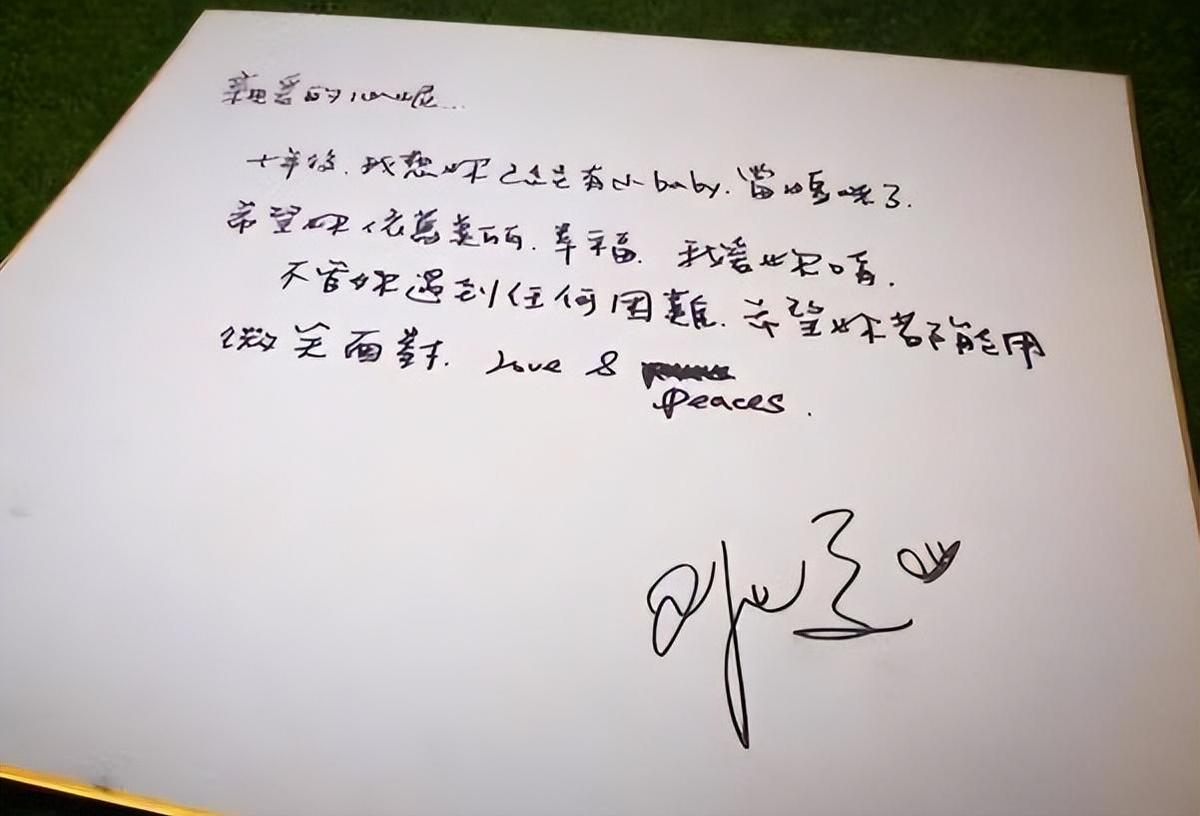 親愛的心妮...
十年後.我想妳已經有小baby.當媽咪了.
希望妳依舊美麗.幸福. 我愛妳唷.
不管妳遇到任何困難.希望妳都能用
微笑面對. Love &
peaces.